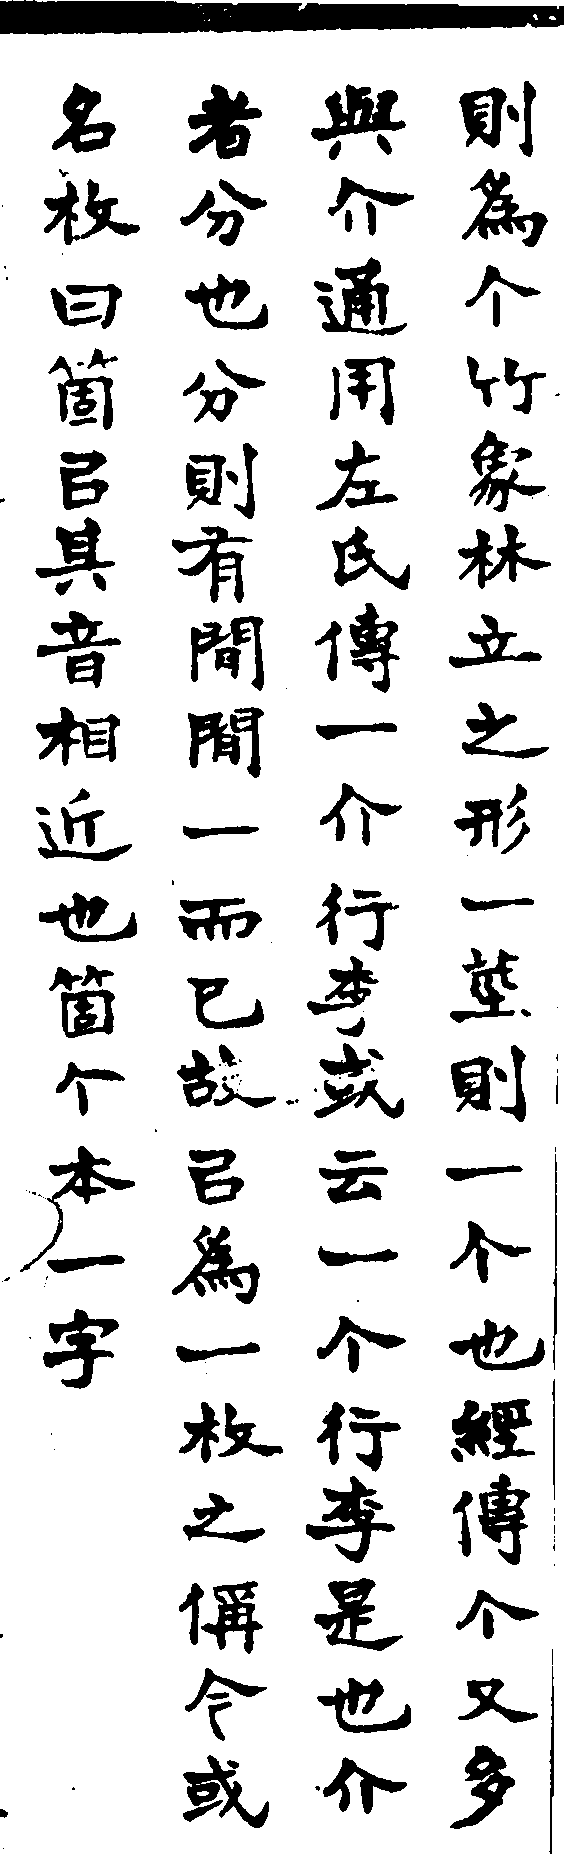 則為个竹象林立之形一莖則一个也經傳个又多
與介通用左氏傳一介行李或云一个行李是也介
者分也分則有間間一而已故㠯為一枚之偁今或
名枚曰箇㠯其音相近也箇个本一字